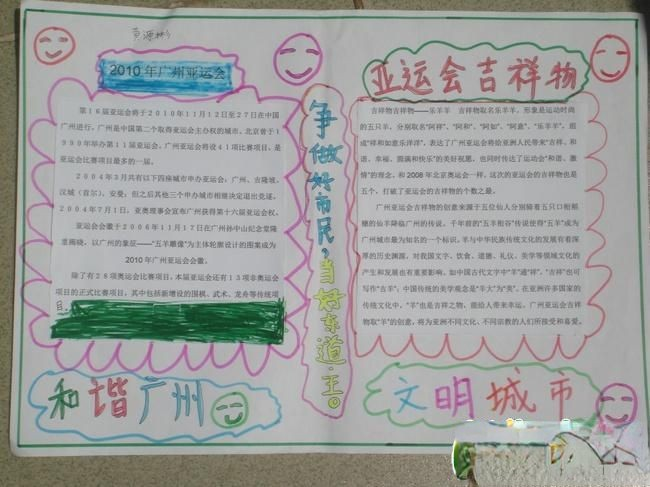 黄源彬
2010年广州亚运会
第16届亚运会将于2010年11月12日至27日在中国
广州进行，广州是中国第二个取得亚运会主办权的城市。北京曾于1
990年举办第11届亚运会。广州亚运会将设41项比赛项目，是
亚运会比赛项目最多的一届。
2004年3月共有以下四座城市申办亚运会：广州、吉隆坡、
汉城（首尔）、安曼，但之后其他三个申办城市相继决定退出竞逐。
2004年7月1日，亚奥理事会宣布广州获得第十六届亚运会权。
亚运会会徽于2006年11月17日在广州孙中山纪念堂隆
重揭晓，以广州的象征——“五羊雕像”为主体轮廓设计的图案成为
2010年广州亚运会会徽。
除了有28项奥运会比赛项目，本届亚运会还有13项非奥运会
项目的正式比赛项目，其中包括新增设的围棋、武术、龙舟等传统项
目。
争做好市民，当好东道主。
亚运会吉祥物
吉祥物吉祥物——乐羊羊 吉祥物取名乐羊羊，形象是运动时尚
的五只羊，分别取名“阿祥”、“阿和”、“阿如”、“阿意”、“乐羊羊”，组
成“祥和如意乐洋洋”，表达了广州亚运会将给亚洲人民带来“吉祥、和
谐、幸福、圆满和快乐”的美好祝愿，也同时传达了运动会“和谐、激
情”的理念。和2008年北京奥运会一样，这次的亚运会的吉祥物也是
五个，打破了亚运会的吉祥物的个数之最。
广州亚运会吉祥物的创意来源于五位仙人分别骑着五只口衔稻
穗的仙羊降临广州的传说。千年前的“五羊衔谷”传说使得“五羊”成为
广州城市最为知名的一个标识。羊与中华民族传统文化的发展有着深
厚的历史渊源，对我国文字、饮食、道德、礼仪、美学等领域文化的
产生和发展也有重要影响。如中国古代文字中“羊”通“祥”，“吉祥”也可
写作“吉羊”；中国传统的美学观念是“羊大”为“美”。在亚洲许多国家的
传统文化中，“羊”也是吉祥之物，能给人带来幸运。广州亚运会吉祥
物取“羊”的创意，将为亚洲不同文化、不同宗教的人们所接受和喜爱。
和谐广州
文明城市